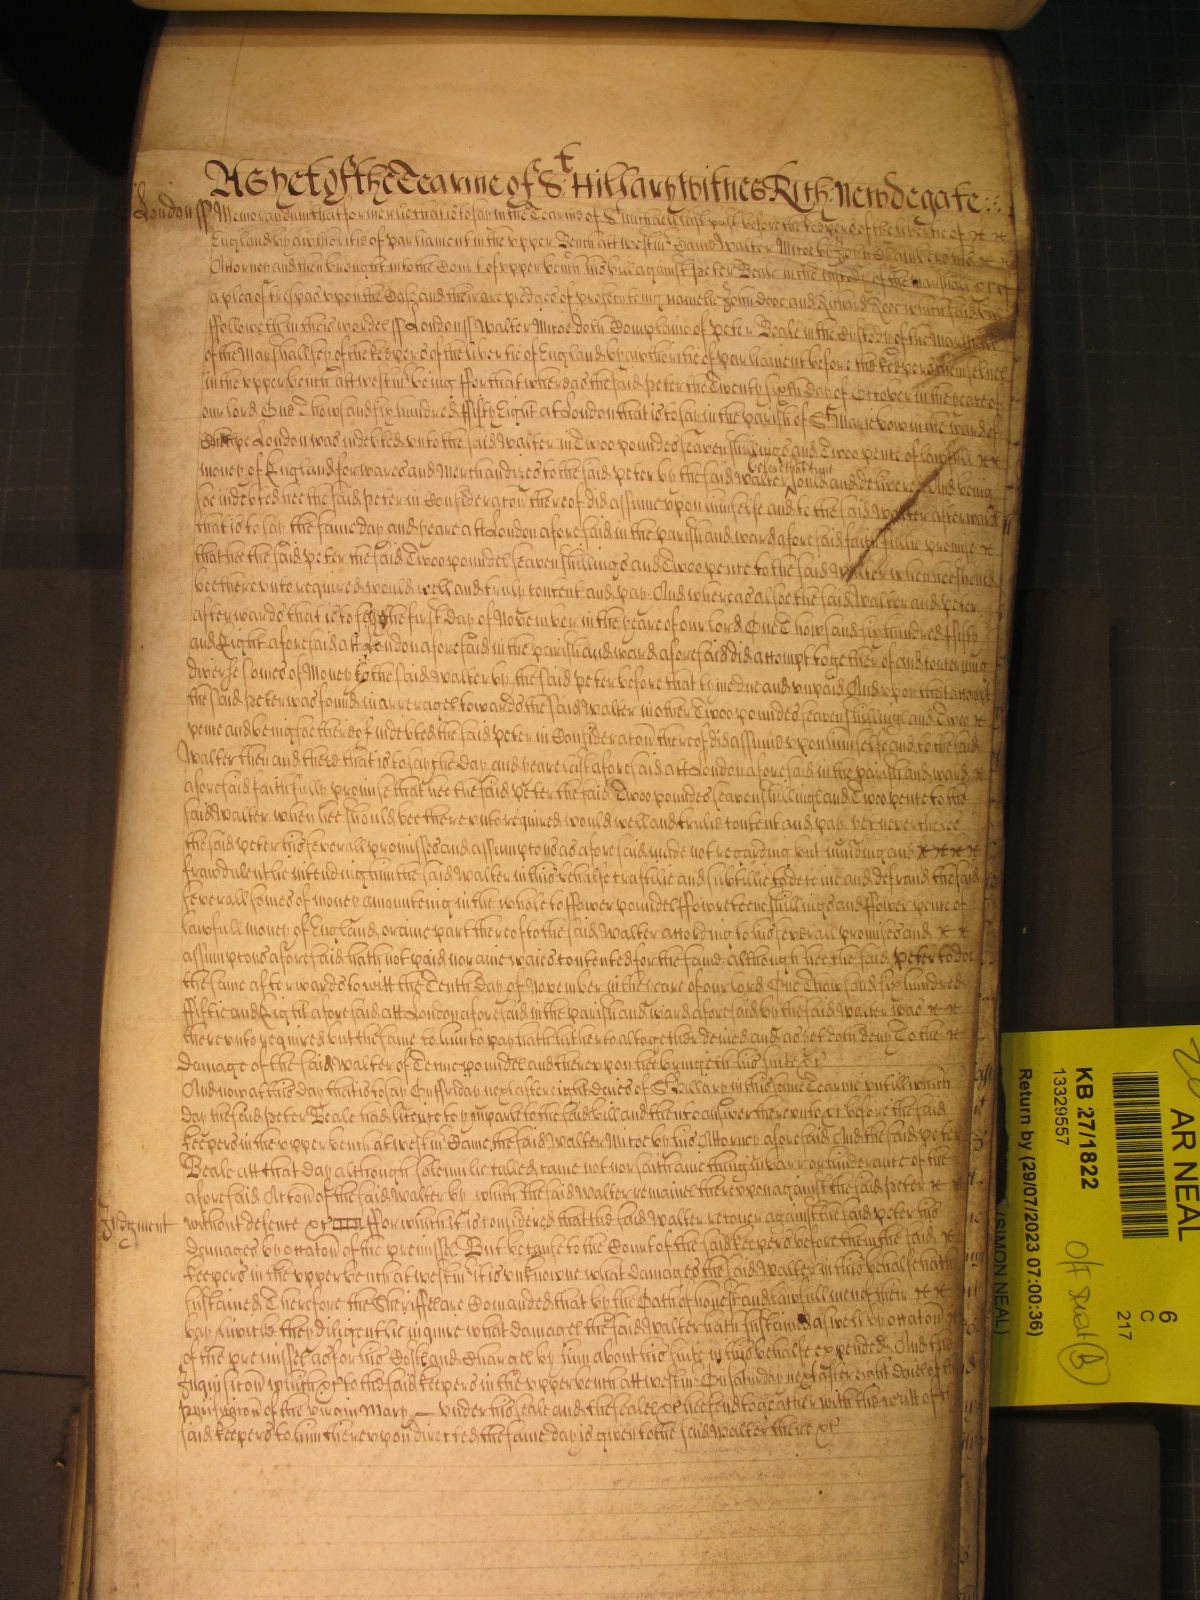 As yet of the Tearme of St Hillary Witnes Rich: Newdegate
London ss Memorandum that formerlie that is to say in the Tearme of St Michaell last past before the keepers of the libertie of
England by authoritie of parliament in the upper Bench att westmr Came Walter Mitoe by John his
Attorney and then brought into the Court of upper bench his bill against Peter Beale in the Custody of the Marshall &c of
a plea of trespas upon the Case and there are pledges of prosecuteing namelie John Dooe and Richard Rooe which said bill
ffolloweth in theis wordes ss London ss Walter Mitoe doth Complaine of Peter Beale in the Custody of the Marshall
of the Marshallsey of the keepers of the libertie of England by authoritie of parliament before the keepers themselves
in the upper bench att westmr being ffor that whereas the said Peter the Twenty sixth Day of October in the yeare of
our lord One Thowsand six hundred ffifty Eight at London that is to say in the parish of St Marie bow in the ward of
Cheape London was indebted unto the said Walter in Twoo poundes seaven shillings and Twoo pence of lawfull
money of England for wares and Merchandizes to the said Peter by the said Walter before that tyme sould and delivered And being
soe indebted hee the said Peter in Consideracon thereof did assume upon himselfe and to the said Walter afterwards
that is to say the same day and yeare att London aforesaid in the parish and ward aforesaid faithfullie promise
that hee the said Peter the said Twoo poundes seaven shillings and Twoo pence to the said Walter when hee should
bee thereunto required would well and truly content and pay And whereas alsoe the said Walter and Peter
afterwards that is to say the first Day of November in the yeare of our lord One Thowsand six hundred ffifty
and Eight aforesaid att London aforesaid in the parish and ward aforesaid did accompt together of and concerning
diverse somes of Money to the said Walter by the said Peter before that tyme due and unpaid And upon that accompt
the said Peter was found in arrerages towards the said Walter in other Twoo poundes seaven shillings and Twoo
pence and being soe thereof indebted the said Peter in Consideracon thereof did assume upon himselfe and to the said
Walter then and there that is to say the day and yeare last aforesaid att London aforesaid in the parish and ward
aforesaid faithfully promise that hee the said Peter the said Twoo poundes seaven shillings and Twoo pence to the
said Walter when hee should bee thereunto required would well and trulie content and pay Yet neverthelesse
the said Peter his severall promises and assumptons as aforesaid made not regarding but minding and
frawdulentlie intending him the said Walter in this behalfe craftilie and subtillie to deceive and defraud the said
severall somes of money amounteing in the whole to ffower poundes ffowreteene shillings and ffower pence of
lawfull money of England or anie part thereof to the said Walter according to his severall promises and
assumptons aforesaid hath not paid nor anie waies contented for the same although hee the said Peter to doe
the same afterwards to witt the Tenth day of November in the yeare of our lord One Thowsand six hundred
ffiftie and Eight aforesaid att London aforesaid in the parish and ward aforesaid by the said Walter was
thereunto required but the same to him to pay hath hitherto altogether denied and as yet doth deny To the
damage of the said Walter of Tenne poundes and thereupon he bringeth his suite &c
And now at this day that is to say On ffriday next after eight daies of St Hillary in this same Tearme untill which
day the said Peter Beale had licence to imparle to the said bill and then to answer thereunto &c before the said
keepers in the upper bench at westmr Came the said Walter Mitoe by his Attorney aforesaid And the said Peter
Beale att that day although solemnlie called came not nor saith anie thing in barr or hinderance of the
aforesaid Accon of the said Walter by which the said Walter remaines thereupon against the said Peter
Judgment without defence &c ffor which it is considered that the said Walter recover against the said Peter his
Damages by occacon of the premisses But because to the Court of the said keepers before them the said
keepers in the upper bench at westmr it is unknowne what damages the said Walter in this behalfe hath
sustained Therefore the Sheriffes are Comanded that by the Oath of honest and lawfull men of their
bayliwicke they diligentlie inquire what damages the said Walter hath sustained aswell by occacon
of the premisses as for his Costs and Charges by him about his suite in this behalfe expended And the
Inquisicon which &c to the said keepers in the upper bench att westmr On saturday next after eight daies of the
Purificacon of the virgin Mary under his seale and the seales &c hee send togeather with the writt of the
said keepers to him thereupon directed the same day is given to the said Walter there &c
AR NEAL
6
C
217
KB 27/1822
13329557
Return by (29/07/2023 07:00:36)
(SIMON NEAL)